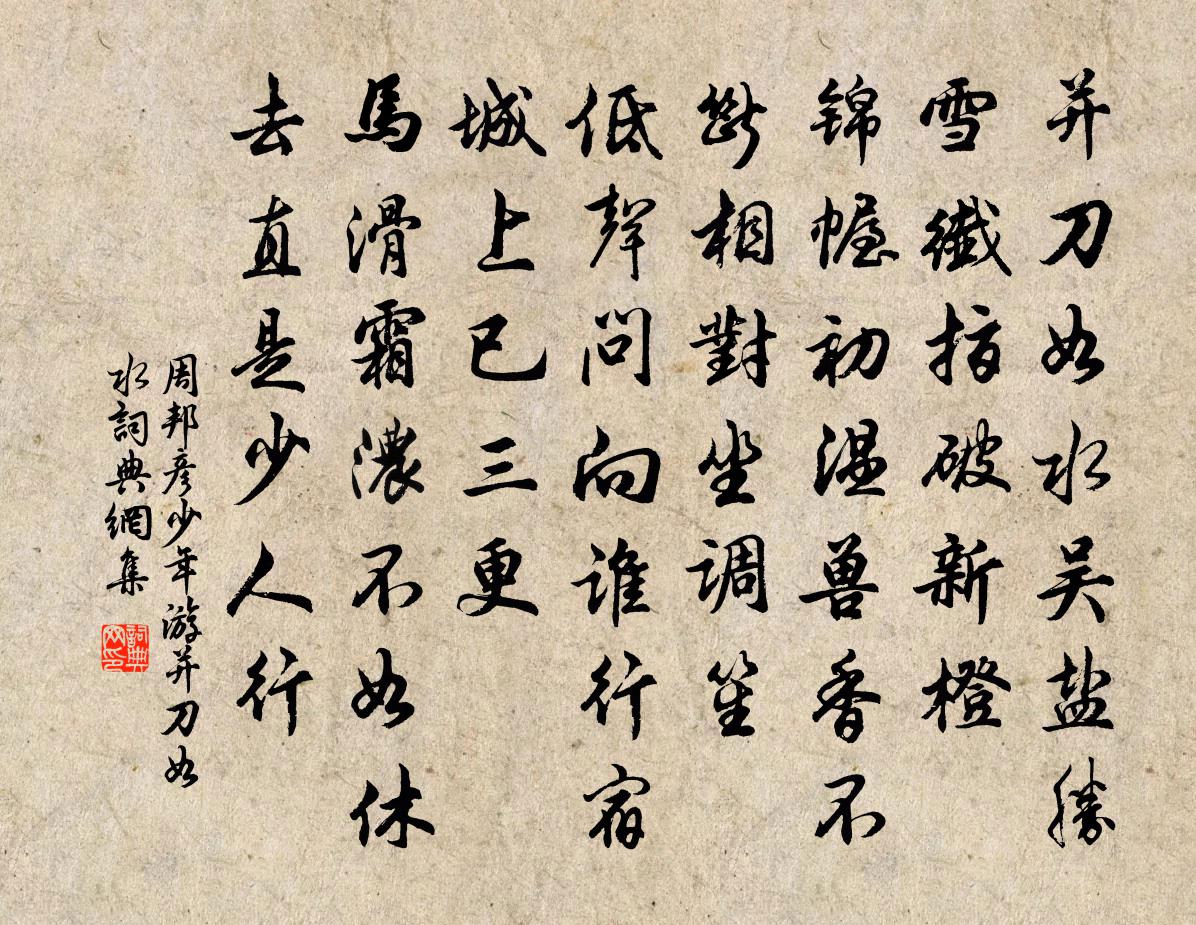 并刀如水吴盐勝
雪纖指破新橙
錦幄初温兽香不
斷相對坐調笙
低聲問向谁行宿
城上已三更
馬滑霜濃不如休
去直是少人行
周邦彦少年游并刀如
水詞典網集
詞典
网印